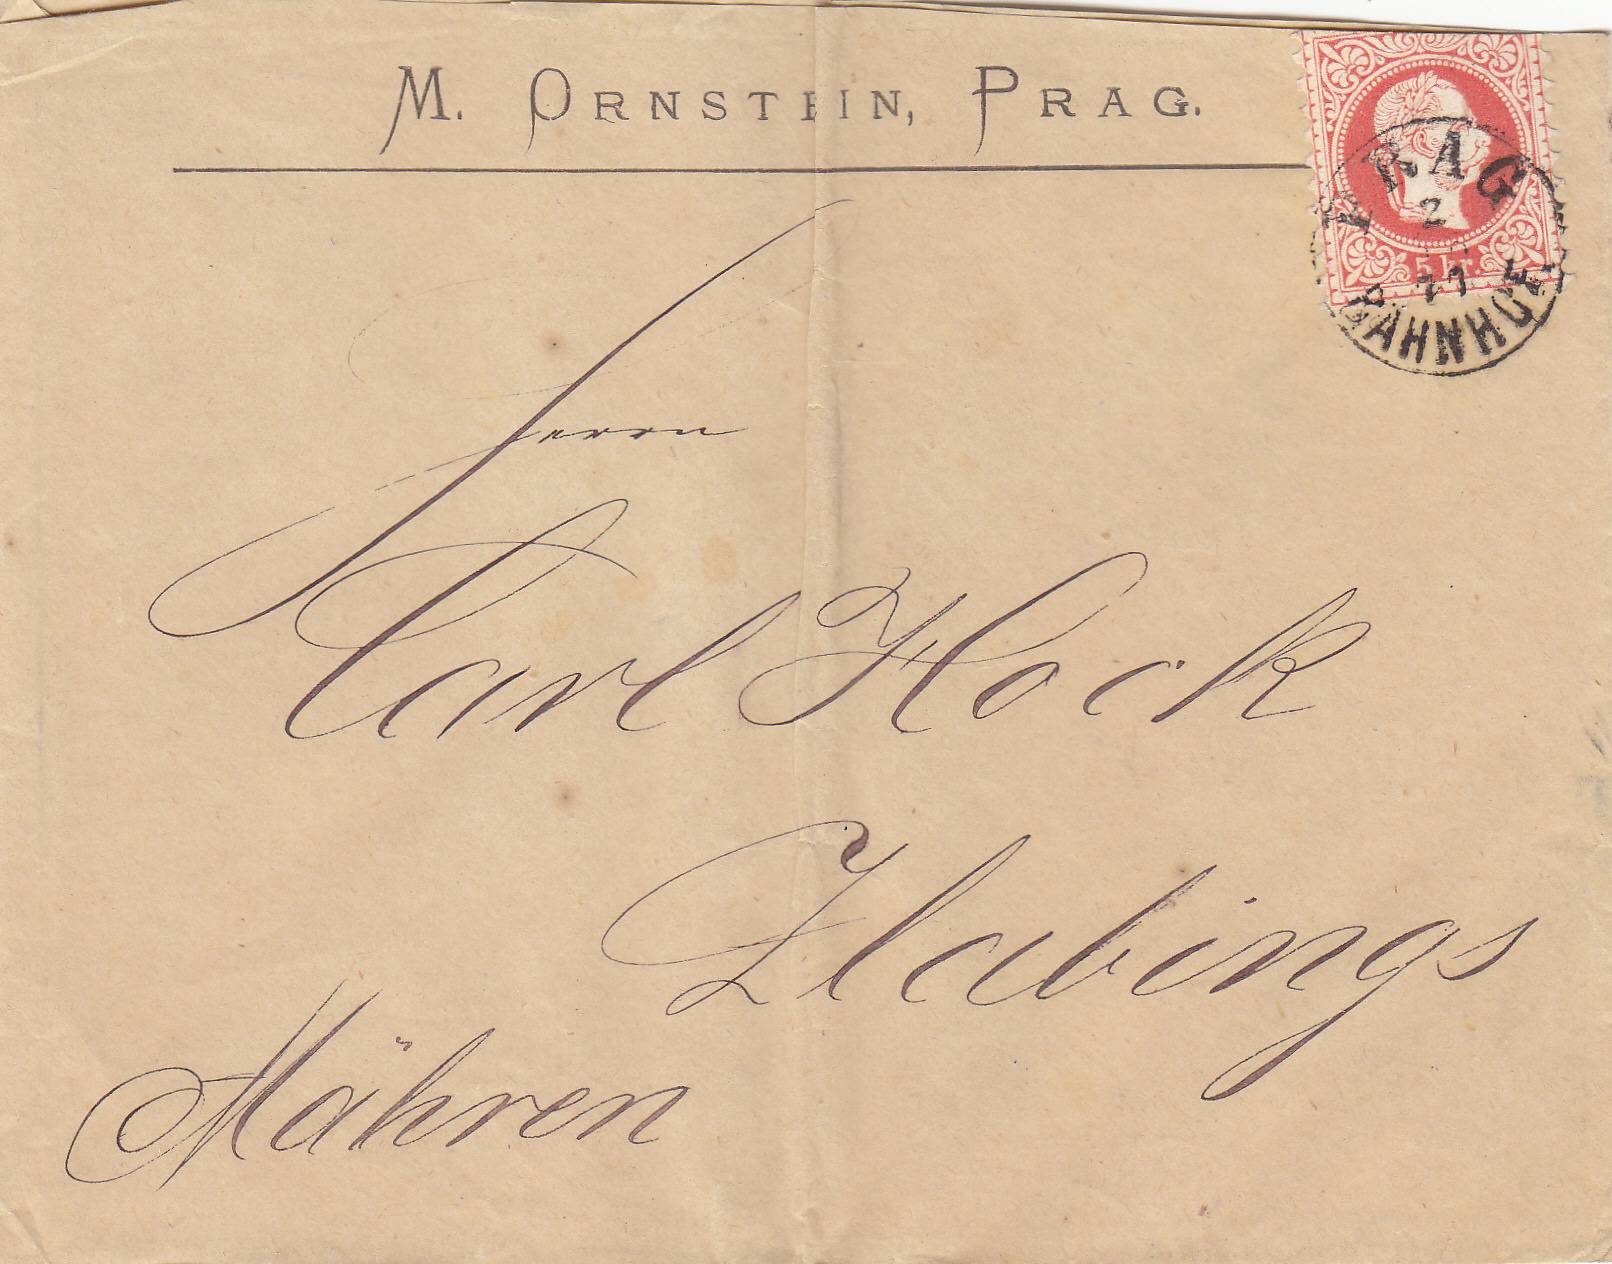 M. ORNSTEIN, PRAG.
PRAG
2
77
BAHNHOF
5 kr.
Herrn
Carl Hock
Zlabings
Mähren